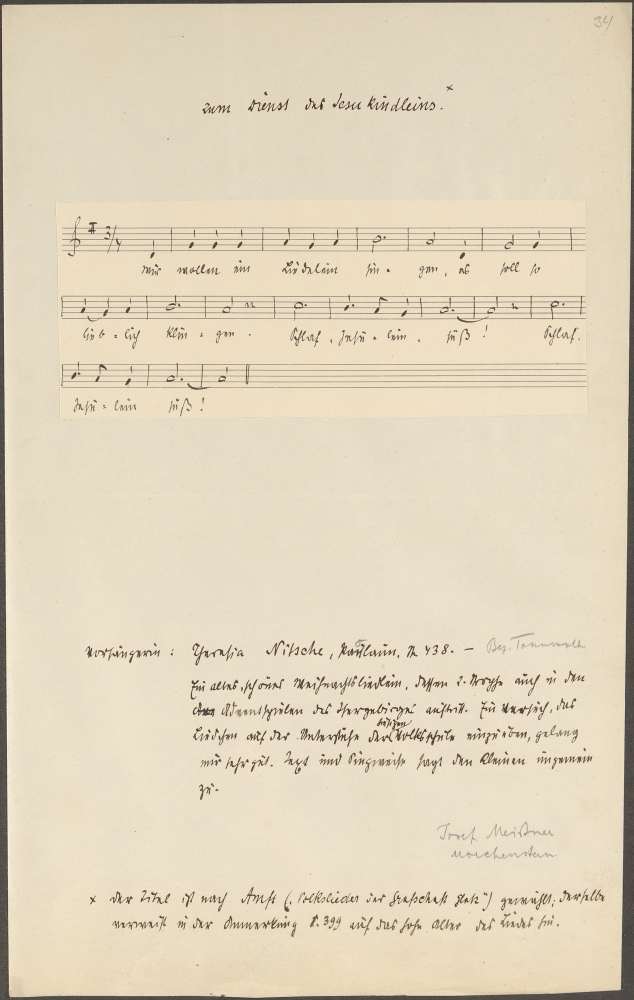 34
Zum Dienst des Jesukindleins. x
3/4
Wir wollen ein Liedelein sin - gen, es soll so
lieb - lich klin - gen. Schlaf, Jesu - lein, süß! Schlaf,
Jesu - lein süß!
Vorsängerin: Theresia Nitsche, Paulaun, № 438. — Bez. Tannwald
Ein altes, schönes Weihnachtsliedlein, dessen 2. Strophe auch in den
Adventspielen des Isergebirges auftritt. Ein Versuch, das
Liedchen auf der Unterstufe der Volksschule einzuüben, gelang
mir sehr gut. Text und Singweise sagt den Kleinen ungemein
zu.
Josef Meißner
Morchenstern
x Der Titel ist nach Amft („Volkslieder der Grafschaft Glatz") gewählt; derselbe
verweist in der Anmerkung S. 399 auf das hohe Alter des Liedes hin.